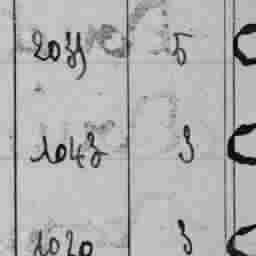 2035 5
1043 3
1020 3